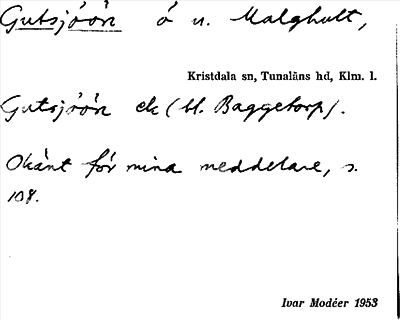 Gutsjöön ö n. Malghult,
Kristdala sn, Tunaläns hd, Klm. l.
Gutsjöön ek (bl. Baggetorp).
Okänt för mina meddelare, s.
108.
Ivar Modéer 1953